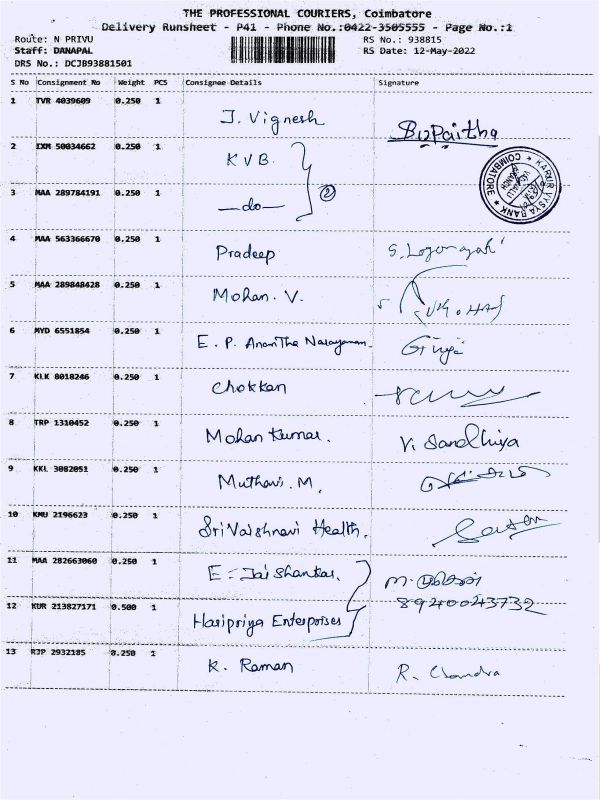 THE PROFESSIONAL COURIERS, Coimbatore
Delivery Runsheet - P41 - Phone No.:0422-3505555 - Page No.:1
Route: N PRIVU RS No.: 938815
Staff: DANAPAL RS Date: 12-May-2022
DRS No.: DCJB93881501
S No Consignment No Weight PCS Consignee Details Signature
1 TVR 4039609 0.250 1 J. Vignesh
2 IXM 50034662 0.250 1 KVB
KARUR VYSYA BANK COIMBATORE
3 MAA 289784191 0.250 1 —do— 2
4 MAA 563366670 0.250 1 Pradeep
5 MAA 289848428 0.250 1 Mohan. V.
6 MYD 6551854 0.250 1 E. P. AnanTha Narayanan.
7 KLK 8018246 0.250 1 Chokkan
8 TRP 1310452 0.250 1 Mohan Kumar. V. Sandhiya
9 KKL 3082051 0.250 1 Muthavi. M.
10 KMU 2196623 0.250 1 Sri Vaishnavi Health.
11 MAA 282663060 0.250 1 E. Jai Shankar.
12 KUR 213827171 0.500 1 Haripriya Enterprises 8940043732
13 RJP 2932185 0.250 1 K. Raman R. Chandra